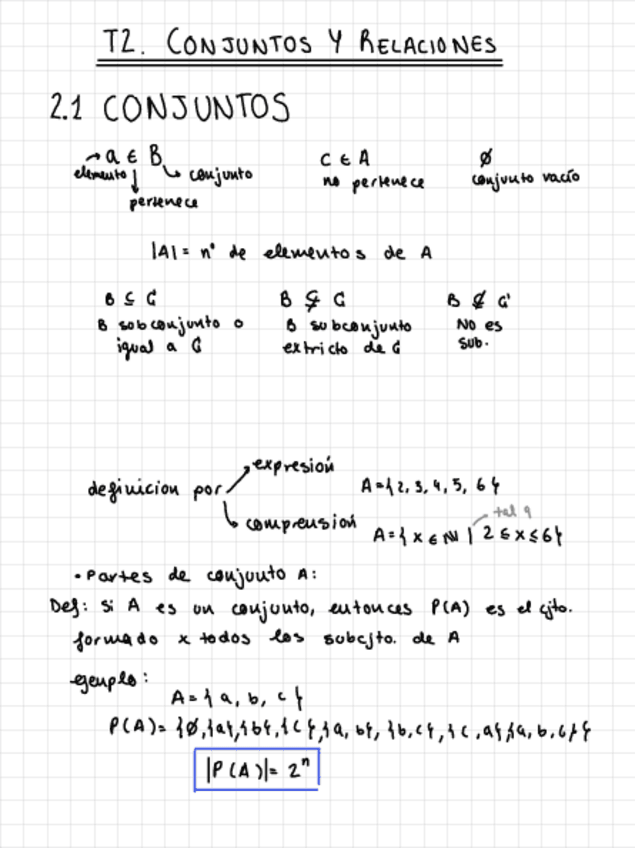 T2. CONJUNTOS Y RELACIONES
2.1 CONJUNTOS
→ a ∈ B
elemento
conjunto
pertenece
C ∈ A
no pertenece
∅
conjunto vacío
|A| = nº de elementos de A
B ⊆ C
B subconjunto o
igual a C
B ⊊ C
B subconjunto
extricto de C
B ⊄ C
No es
sub.
definicion por
expresión
A={2, 3, 4, 5, 6}
comprensión
tal q
A={x ∈ ℕ | 2 ≤ x ≤ 6}
• Partes de conjunto A:
Def: si A es un conjunto, entonces P(A) es el cjto.
formado x todos los subcjto. de A
ejemplo:
A={a, b, c}
P(A)= {∅,{a},{b},{c},{a, b}, {b,c},{c,a},{a,b,c}}
|P(A)|= 2ⁿ